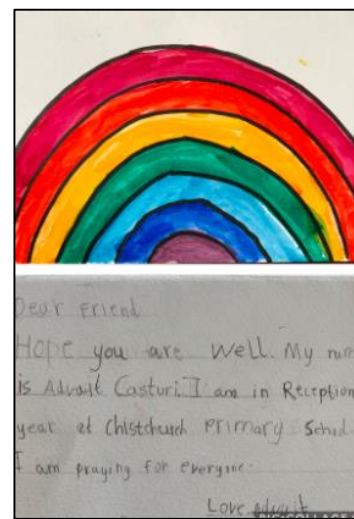 Dear Friend
Hope you are well. My nam
is Advait Casturi. I am in Reception
year at Chistchurch Primary School.
I am praying for everyone.
Love Advait
PICCOLLAGE